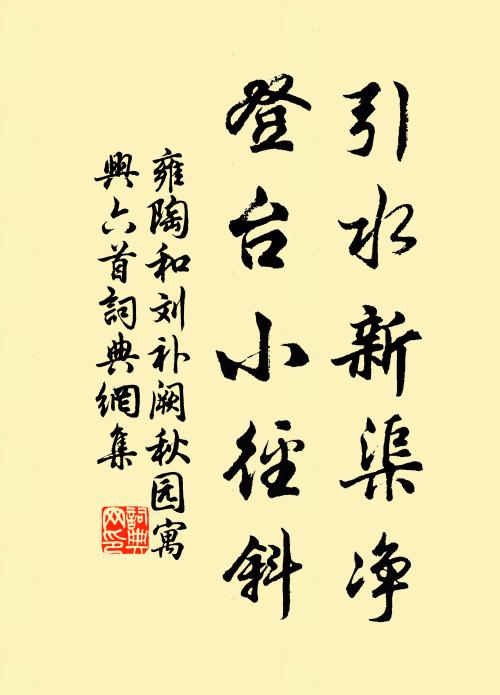 引水新渠净
登台小径斜
雍陶和刘补阙秋园寓
興六首詞典網集
詞典
网印